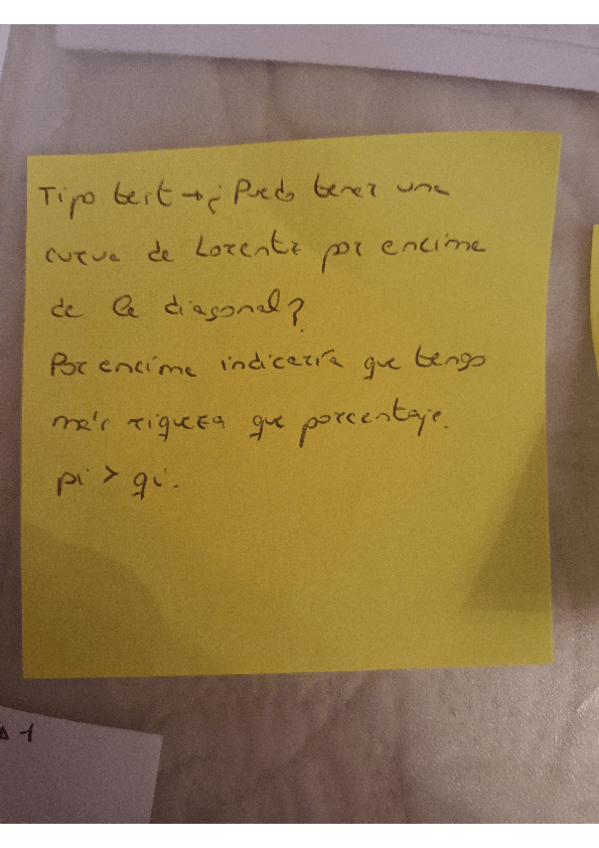 Tipo test → ¿Puedo tener una
curva de Lorentz por encima
de la diagonal?
Por encima indicaría que tengo
más riqueza que porcentaje.
pi > qi.
1